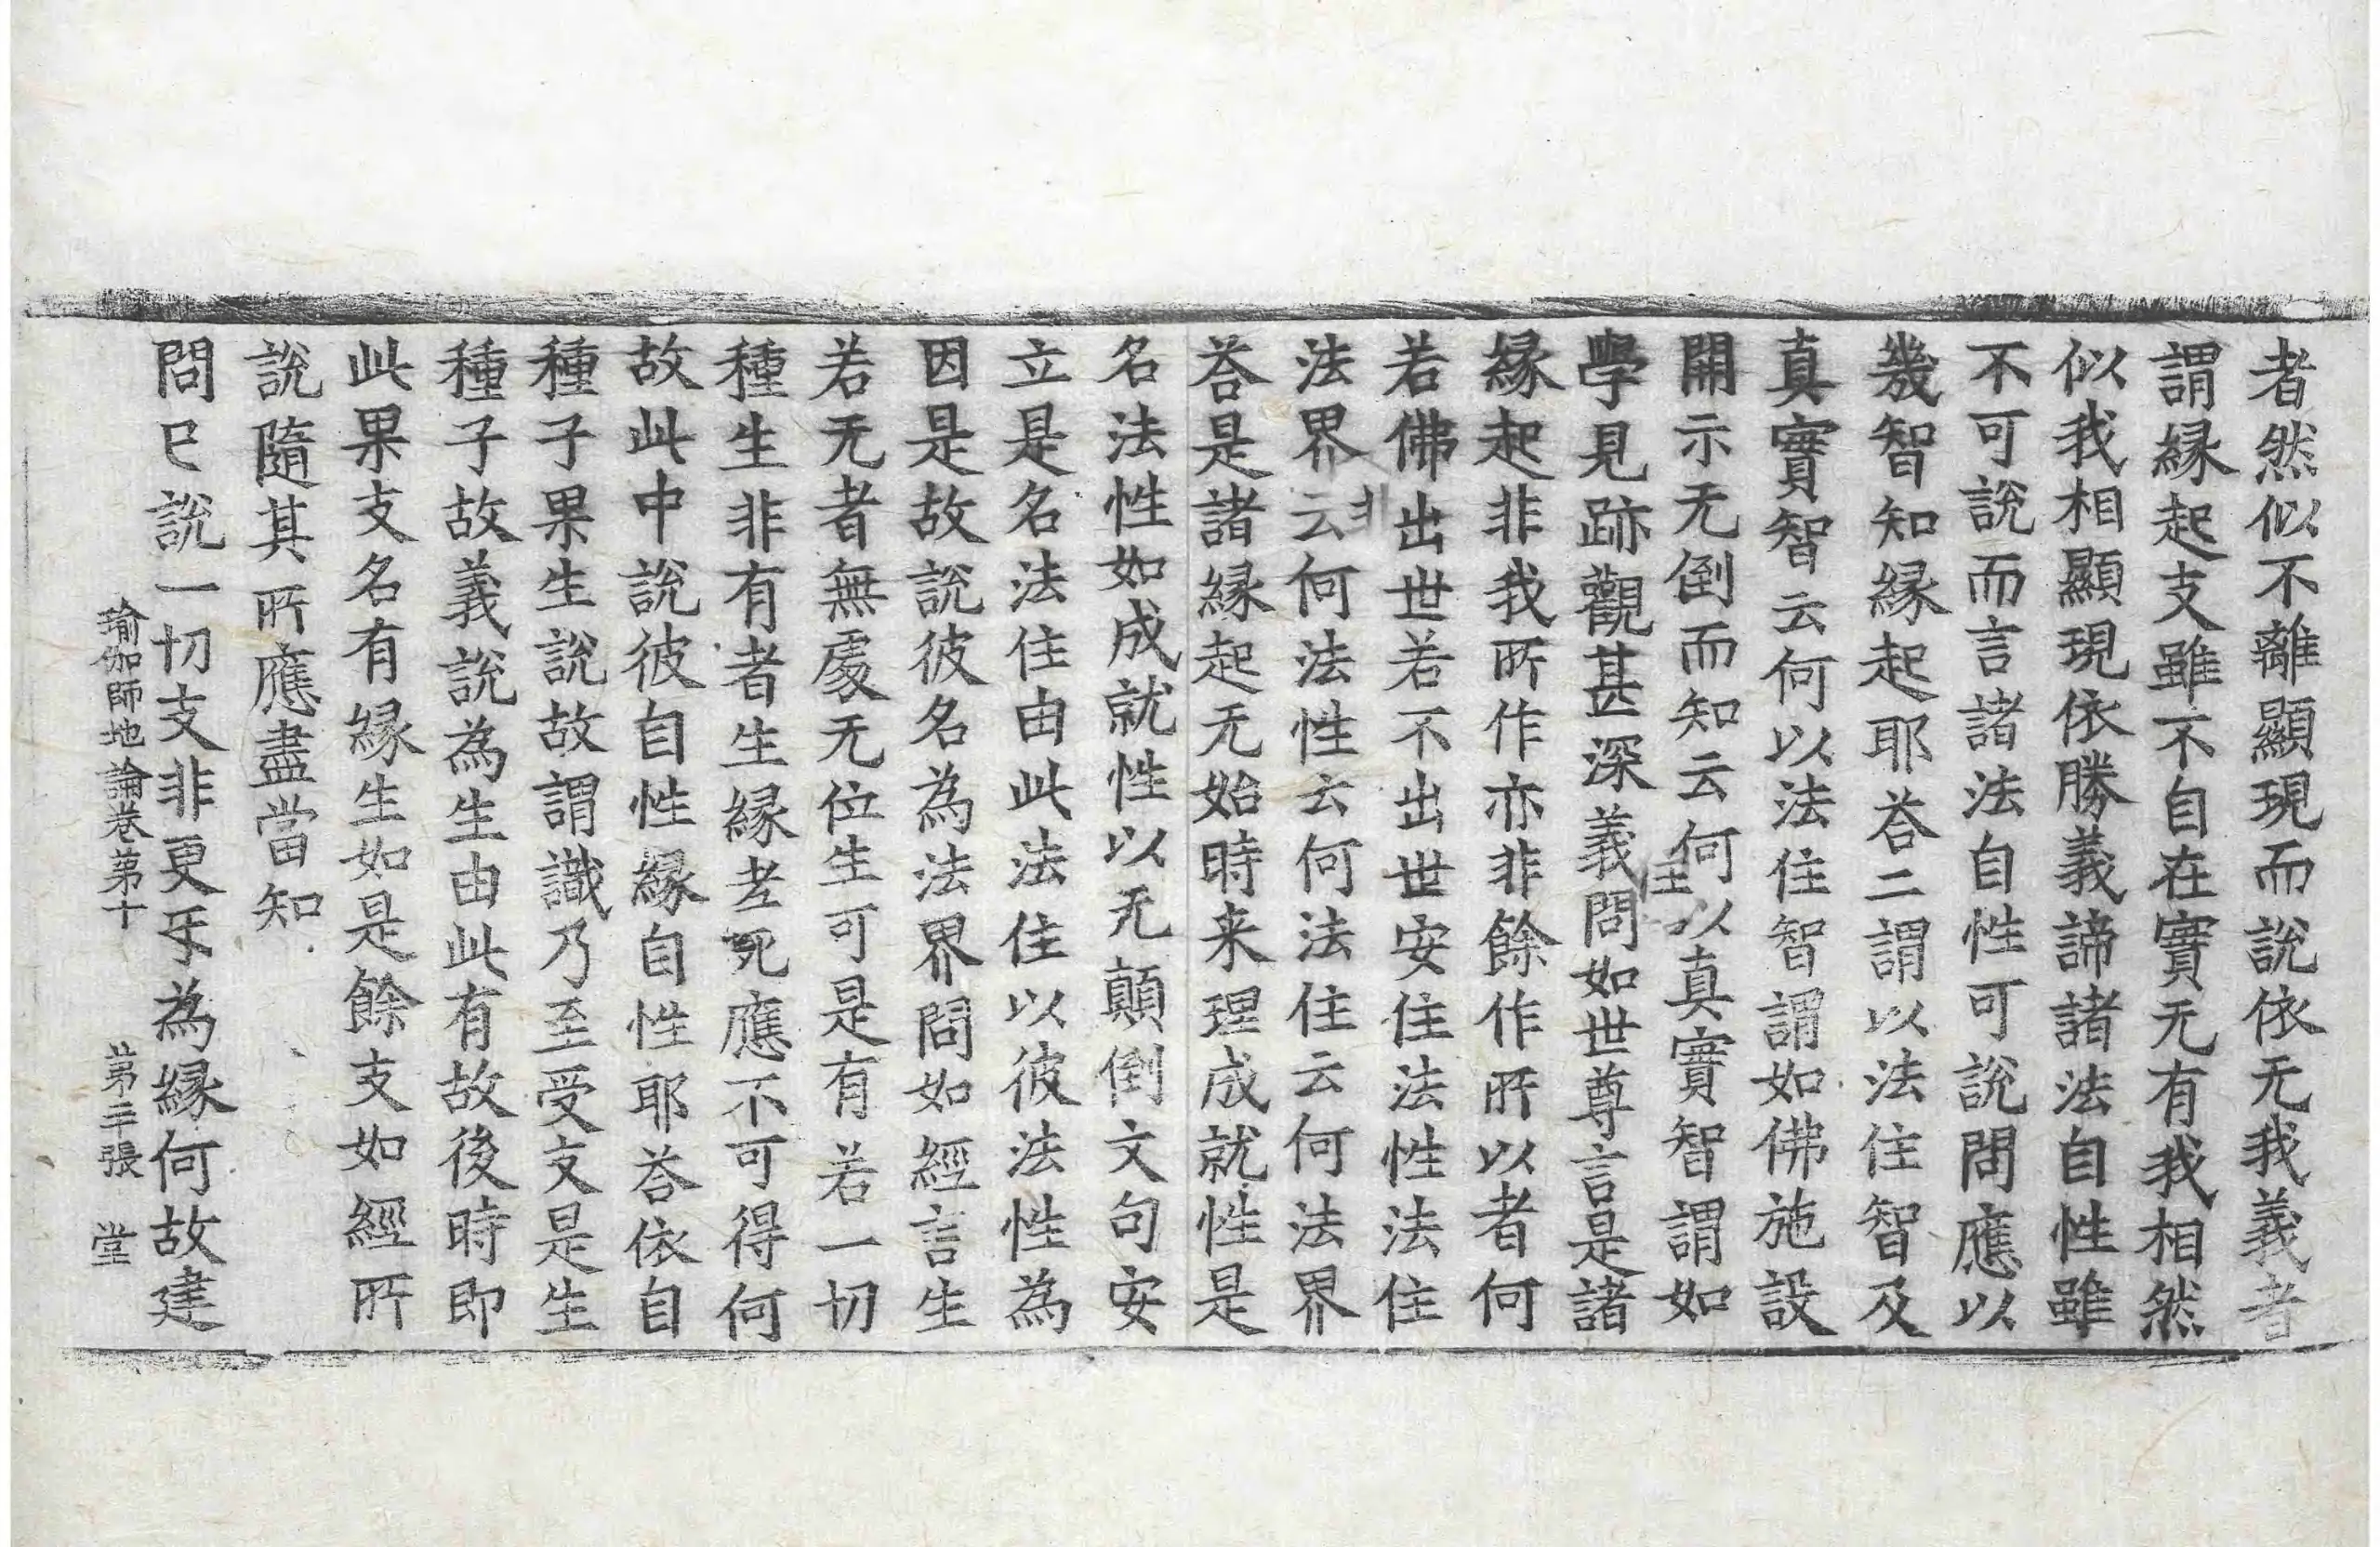 者然似不離顯現而說依无我義者
謂縁起支雖不自在實无有我相然
似我相顯現依勝義諦諸法自性雖
不可說而言諸法自性可說問應以
幾智知縁起耶荅二謂以法住智及
真實智云何以法住智謂如佛施設
開示无倒而知云何以真實智謂如
學見跡觀甚深義問如世尊言是諸
縁起非我所作亦非餘作所以者何
若佛出世若不出世安住法性法住
法界云何法性云何法住云何法界
荅是諸縁起无始時来理成就性是
名法性如成就性以无顛倒文句安
立是名法住由此法住以彼法性為
因是故說彼名為法界問如經言生
若无者無處无位生可是有若一切
種生非有者生縁老死應不可得何
故此中說彼自性縁自性耶荅依自
種子果生說故謂識乃至受支是生
種子故義說為生由此有故後時即
此果支名有縁生如是餘支如經所
說隨其所應盡當知
問已說一切支非更互為縁何故建
瑜伽師地論卷第十 第三張 堂